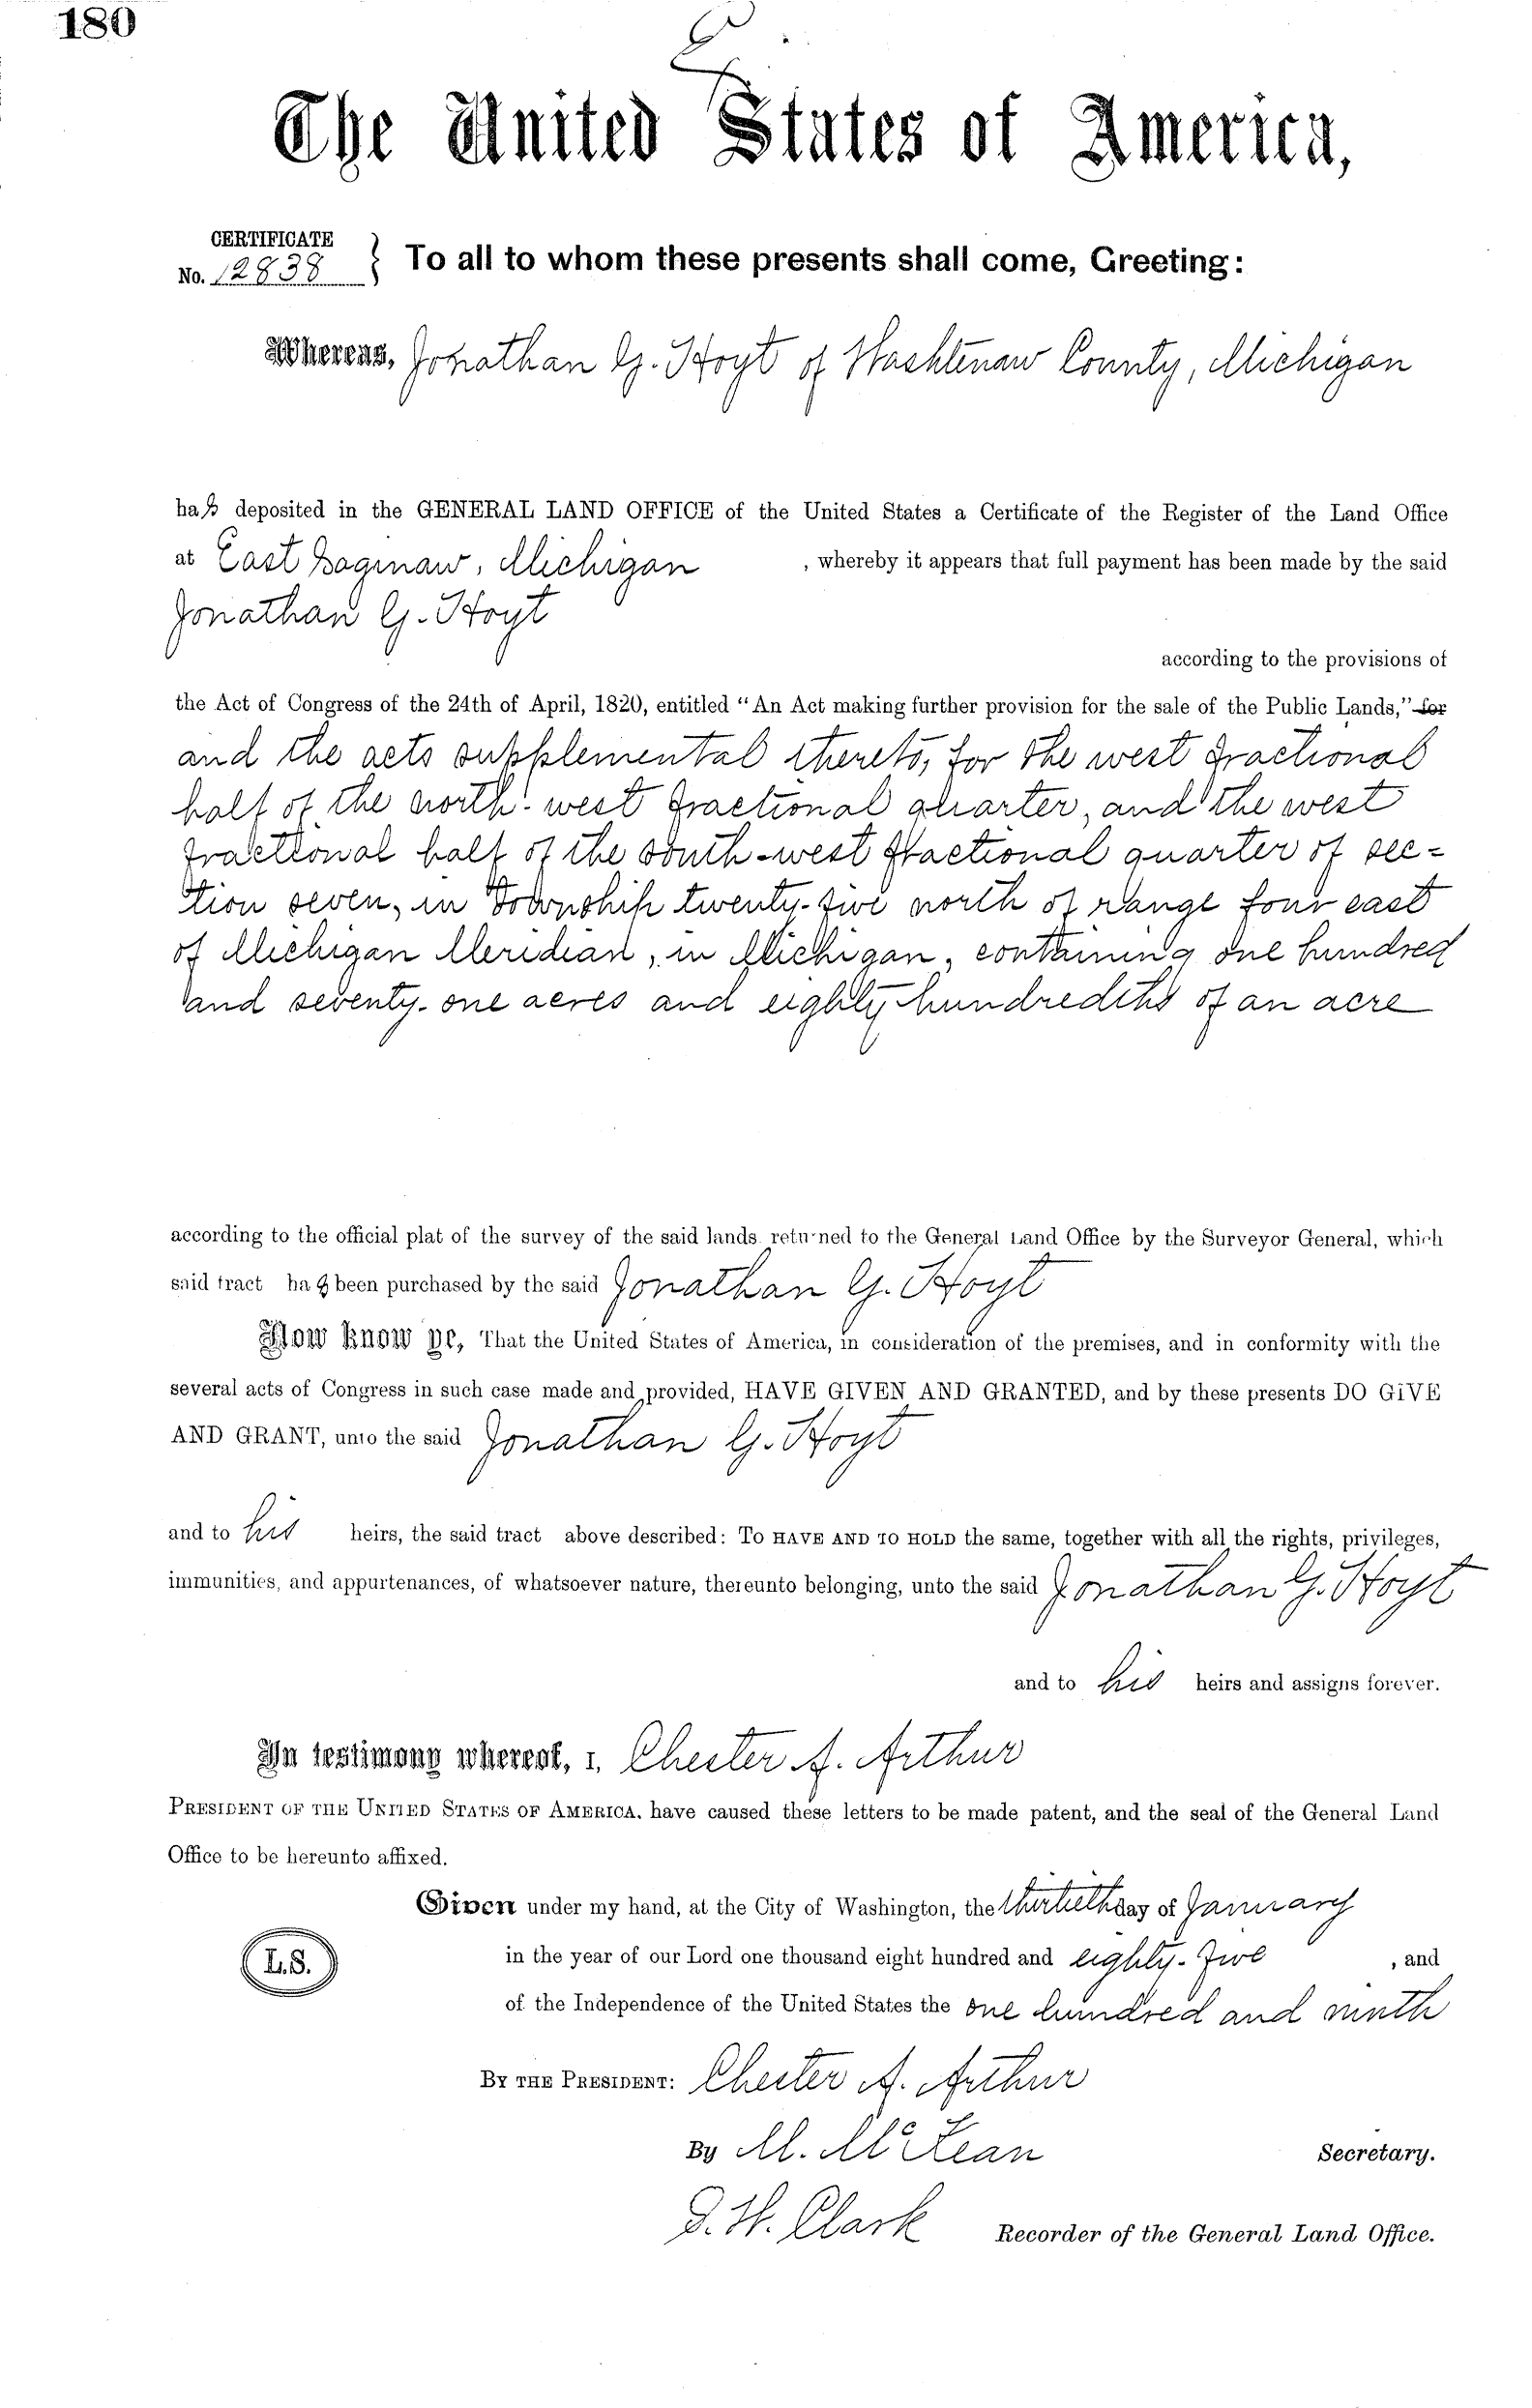 180
The United States of America,
CERTIFICATE
No. 12838
To all to whom these presents shall come, Greeting:
Whereas, Jonathan G. Hoyt of Washtenaw County, Michigan
has deposited in the GENERAL LAND OFFICE of the United States a Certificate of the Register of the Land Office
at East Saginaw, Michigan , whereby it appears that full payment has been made by the said
Jonathan G. Hoyt
according to the provisions of
the Act of Congress of the 24th of April, 1820, entitled “An Act making further provision for the sale of the Public Lands,” for
and the acts supplemental thereto, for the west fractional
half of the north-west fractional quarter, and the west
fractional half of the south-west fractional quarter of sec=
tion seven, in Township twenty-five north of range four east
of Michigan Meridian, in Michigan, containing one hundred
and seventy-one acres and eighty hundredths of an acre
according to the official plat of the survey of the said lands returned to the General Land Office by the Surveyor General, which
said tract has been purchased by the said Jonathan G. Hoyt
Now know ye, That the United States of America, in consideration of the premises, and in conformity with the
several acts of Congress in such case made and provided, HAVE GIVEN AND GRANTED, and by these presents DO GIVE
AND GRANT, unto the said Jonathan G. Hoyt
and to his heirs, the said tract above described: To HAVE AND TO HOLD the same, together with all the rights, privileges,
immunities, and appurtenances, of whatsoever nature, thereunto belonging, unto the said Jonathan G. Hoyt
and to his heirs and assigns forever.
In testimony whereof, I, Chester A. Arthur
PRESIDENT OF THE UNITED STATES OF AMERICA, have caused these letters to be made patent, and the seal of the General Land
Office to be hereunto affixed.
Given under my hand, at the City of Washington, the thirtieth day of January
in the year of our Lord one thousand eight hundred and eighty-five , and
of the Independence of the United States the one hundred and ninth
L.S.
BY THE PRESIDENT: Chester A. Arthur
By M. McKean Secretary.
S. W. Clark Recorder of the General Land Office.